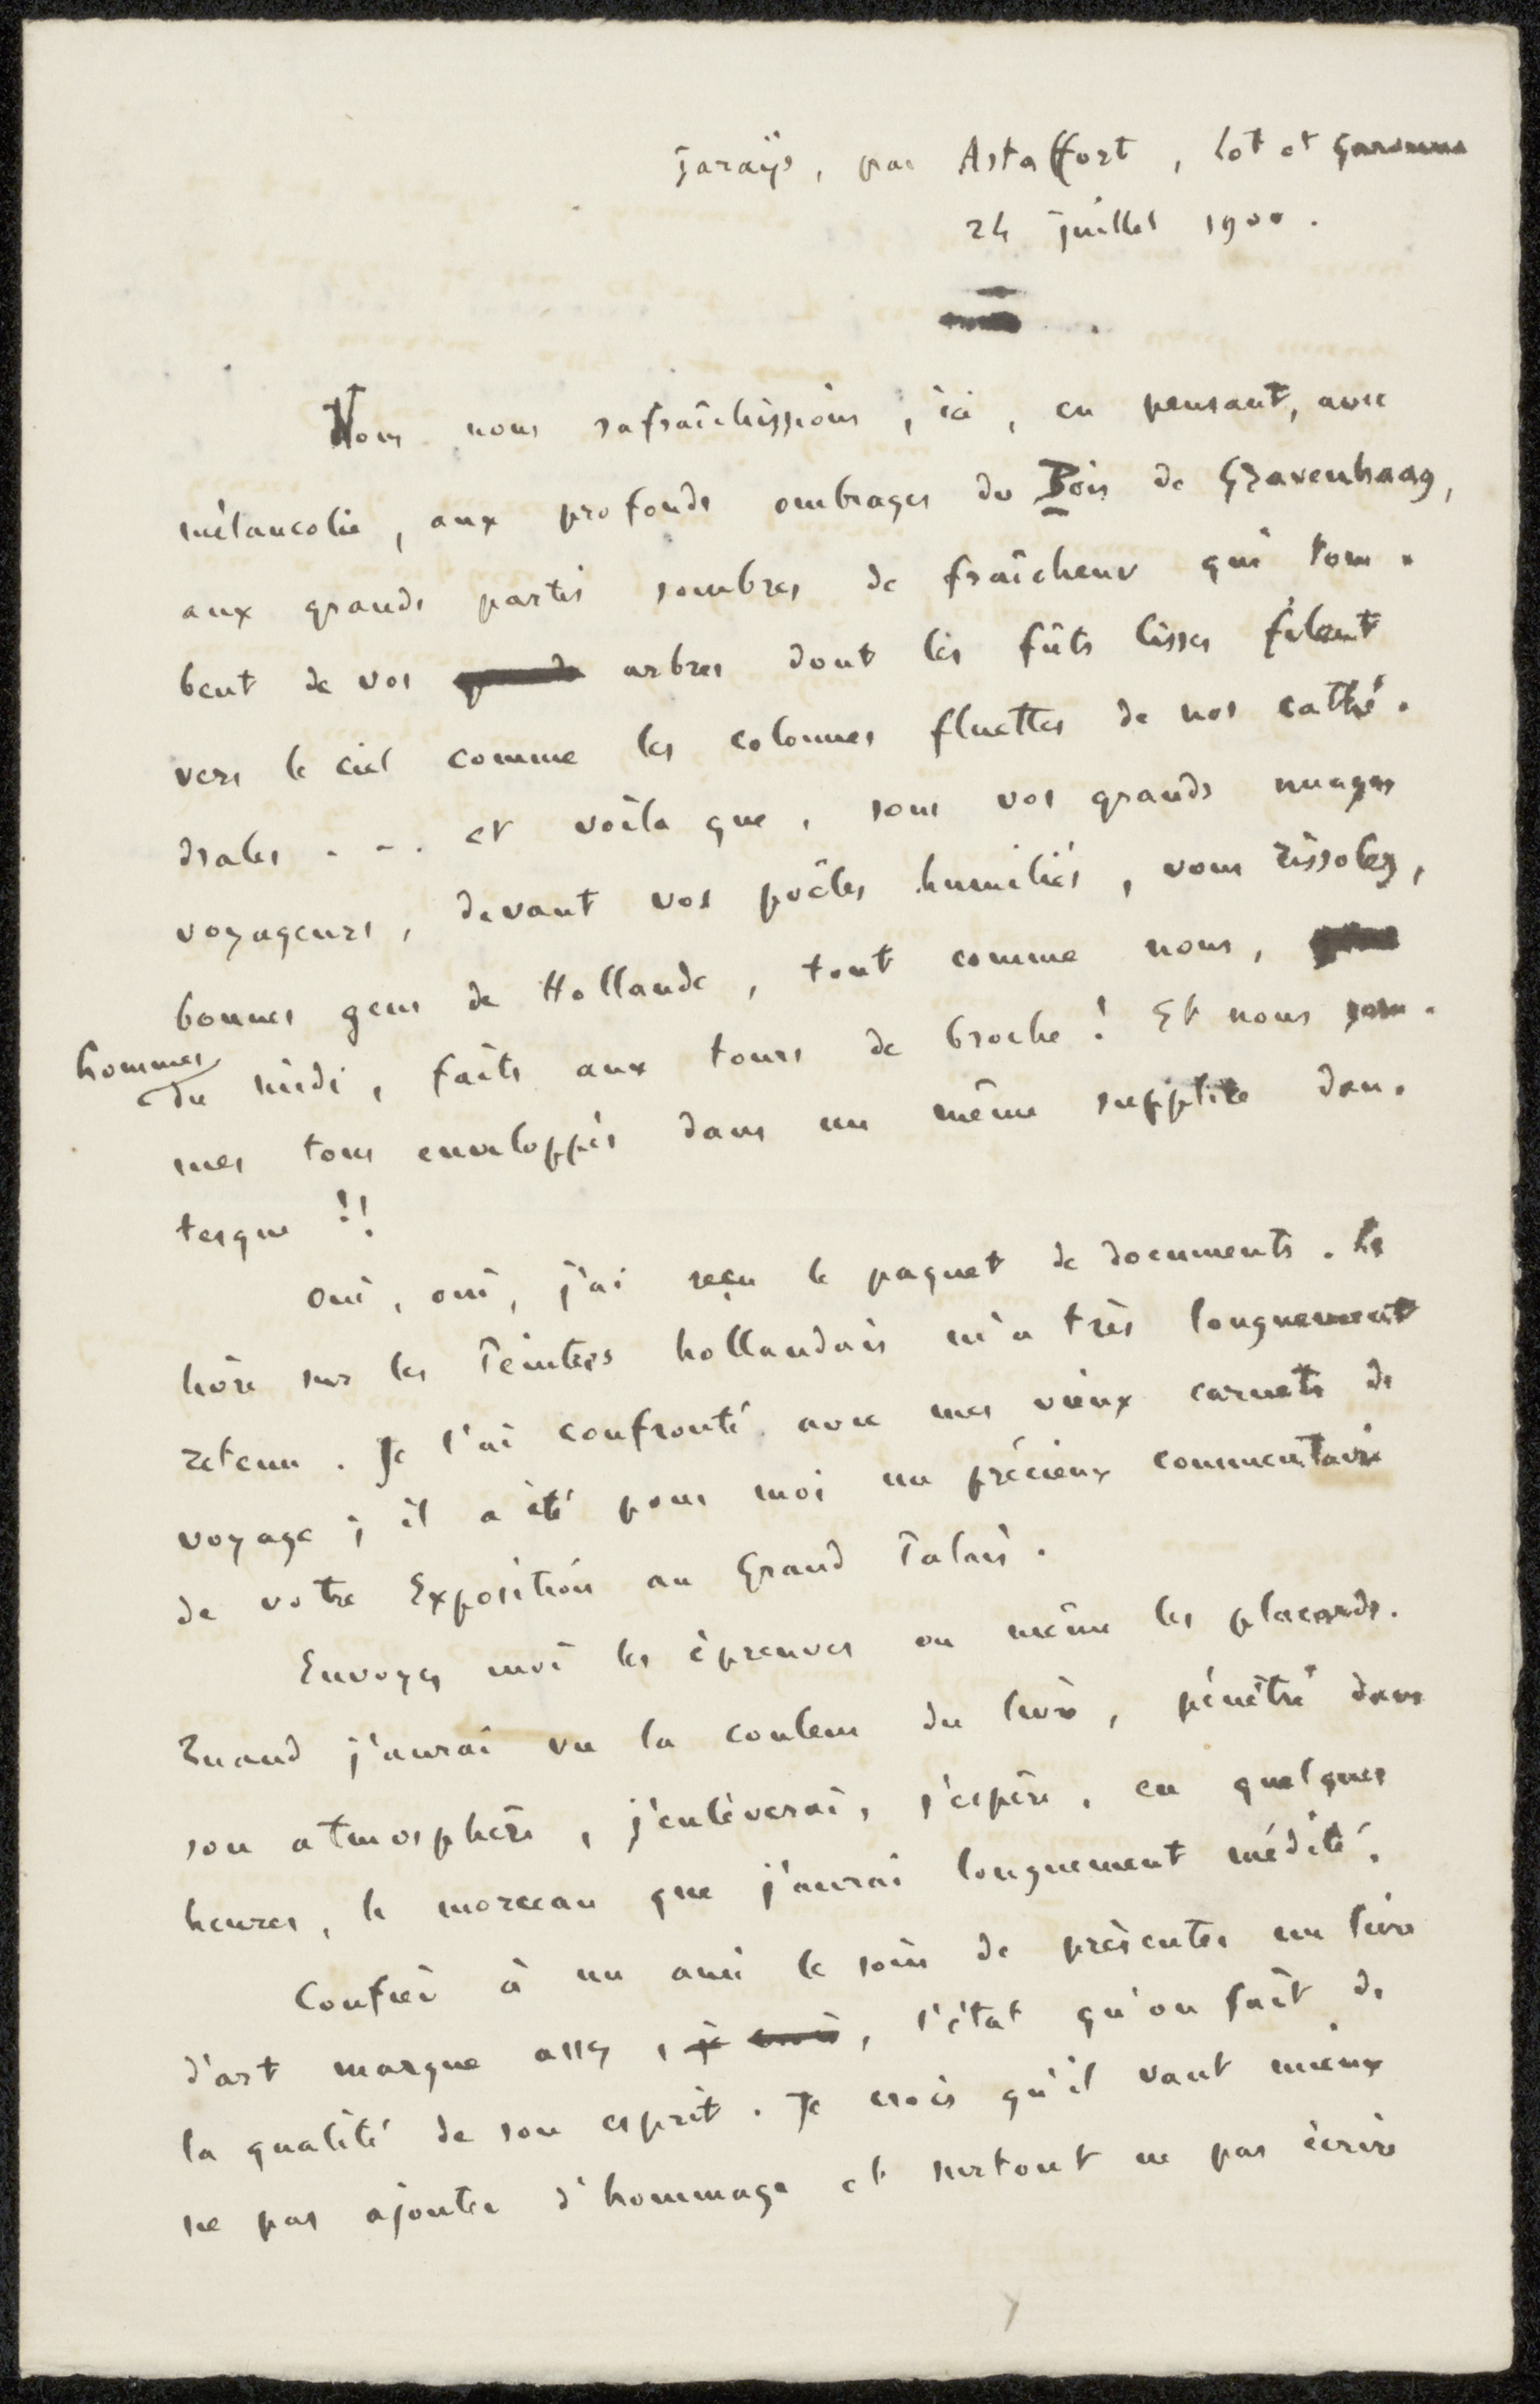 Garaÿs, par Astaffort, Lot et Garonne
24 juillet 1900.
Nous nous rafraîchissions, ici, en pensant, avec
mélancolie, aux profonds ombrages du Bois de Gravenhaag,
aux grands partis sombres de fraîcheur qui tom-
bent de vos arbres dont les fûts lisses filent
vers le ciel comme les colonnes fluettes de nos cathé-
drales - - . et voila que, sous vos grands nuages
voyageurs, devant vos poêles humiliés, vous rissolez,
bonnes gens de Hollande, tout comme nous,
hommes
du midi, faits aux tours de broche ! Et nous som-
mes tous enveloppés dans un même supplice dan-
tesque !!
Oui, oui, j'ai reçu le paquet de documents. Le
livre sur les Peintres hollandais m'a très longuement
retenu. Je l'ai confronté avec mes vieux carnets de
voyage ; il a été pour moi un précieux commentaire
de votre Exposition au Grand Palais.
Envoyez moi les épreuves ou même les placards.
Quand j'aurai vu la couleur du livre, pénétré dans
son atmosphère, j'enlèverai, j'espère, en quelques
heures, le morceau que j'aurai longuement médité.
Confier à un ami le soin de présenter un livre
d'art marque assez, je crois, l'état qu'on fait de
la qualité de son esprit. Je crois qu'il vaut mieux
ne pas ajouter d'hommage et surtout ne pas écrire